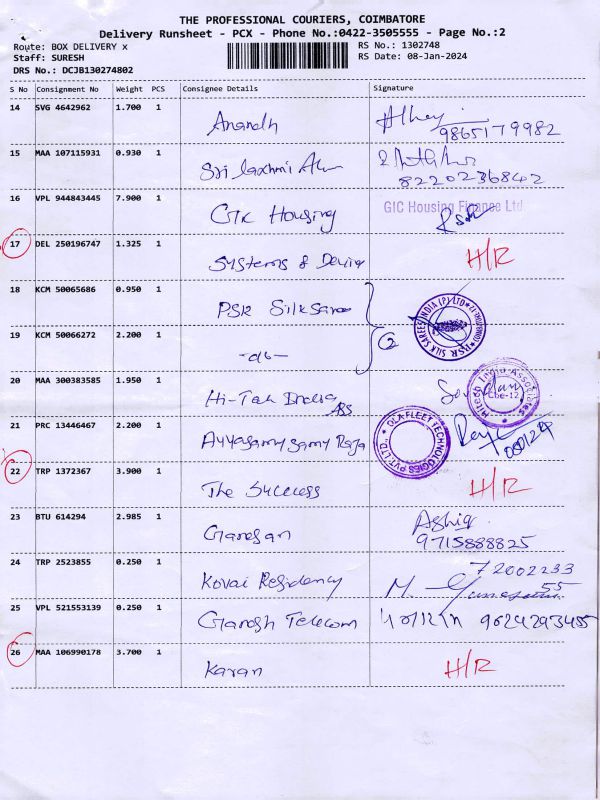 THE PROFESSIONAL COURIERS, COIMBATORE
Delivery Runsheet - PCX - Phone No.:0422-3505555 - Page No.:2
Route: BOX DELIVERY x
RS No.: 1302748
Staff: SURESH
RS Date: 08-Jan-2024
DRS No.: DCJB130274802
S No Consignment No Weight PCS Consignee Details Signature
14 SVG 4642962 1.700 1 Anandh 9865179982
15 MAA 107115931 0.930 1 Sri laxmi 8220236842
16 VPL 944843445 7.900 1 GIC Housing GIC Housing Finance Ltd
17 DEL 250196747 1.325 1 Systems & Device H/R
18 KCM 50065686 0.950 1 PSR Silk Saree PSR SILK SAREES INDIA (P) LTD
19 KCM 50066272 2.200 1 -do- 2
20 MAA 300383585 1.950 1 Hi-Tech India Ass Hitech India Associates Cbe-12
21 PRC 13446467 2.200 1 Ayyasamy samy Raja OLA FLEET TECHNOLOGIES PVT. LTD.
22 TRP 1372367 3.900 1 The Success H/R
23 BTU 614294 2.985 1 Ganesan Ashiq
9715888825
24 TRP 2523855 0.250 1 Kovai Residency 72002233
55
25 VPL 521553139 0.250 1 Ganesh Telecom
26 MAA 106990178 3.700 1 Karan H/R